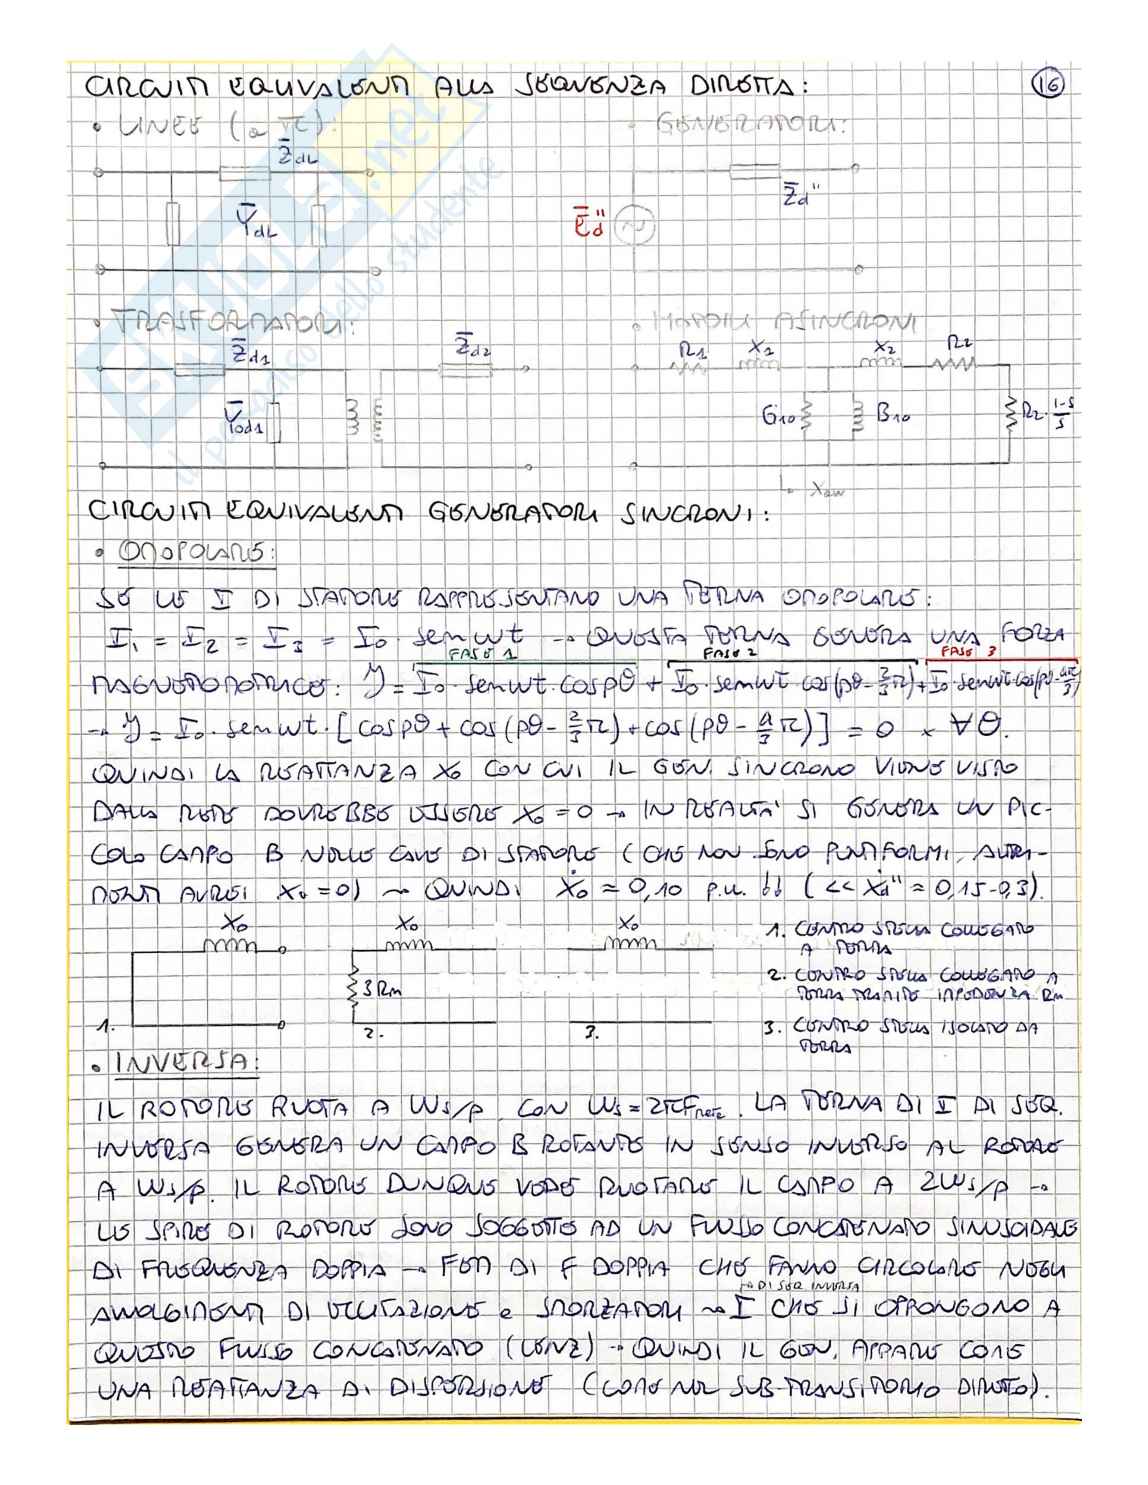 CIRCUITI EQUIVALENTI ALLA SEQUENZA DIRETTA:
16
• LINEE (a π):
• GENERATORI:
Z̄dL
Z̄d"
ȲdL
Ēd"
• TRASFORMATORI:
• MOTORI ASINCRONI
Z̄d1
Z̄d2
R1 X1 X2 R2
Ȳ0d1
G10 B10 R2·(1-s)/s
CIRCUITI EQUIVALENTI GENERATORI SINCRONI:
• OMOPOLARE:
SE LE I DI STATORE RAPPRESENTANO UNA TERNA OMOPOLARE:
I1 = I2 = I3 = I0 · sen wt → QUESTA TERNA GENERA UNA FORZA
FASE 1 FASE 2 FASE 3
MAGNETOMOTRICE: Y = I0·senwt·cospθ + I0·senwt·cos(pθ - 2/3π) + I0·senwt·cos(pθ - 4π/3)
→ Y = I0·senwt·[cospθ + cos(pθ - 2/3π) + cos(pθ - 4/3π)] = 0 x ∀θ.
QUINDI LA REATTANZA X0 CON CUI IL GEN. SINCRONO VIENE VISTO
DALLA RETE DOVREBBE ESSERE X0 = 0 → IN REALTA' SI GENERA UN PIC-
COLO CAMPO B NELLE CAVE DI STATORE (CHE NON SONO PUNTIFORMI, ALTRI-
MENTI AVREI X0 = 0) → QUINDI X0 ≈ 0,10 p.u. ↓↓ (<< Xd" ≈ 0,15-0,3).
X0 X0 X0
3Rm
1. 2. 3.
1. CENTRO STELLA COLLEGATO
A TERRA
2. CENTRO STELLA COLLEGATO A
TERRA TRAMITE IMPEDENZA Rm
3. CENTRO STELLA ISOLATO DA
TERRA
• INVERSA:
IL ROTORE RUOTA A Ws/p, CON Ws = 2πFrete. LA TERNA DI I DI SEQ.
INVERSA GENERA UN CAMPO B ROTANTE IN SENSO INVERSO AL ROTORE
A Ws/p. IL ROTORE DUNQUE VEDE RUOTARE IL CAMPO A 2Ws/p →
LE SPIRE DI ROTORE SONO SOGGETTE AD UN FLUSSO CONCATENATO SINUSOIDALE
DI FREQUENZA DOPPIA → FEM DI F DOPPIA CHE FANNO CIRCOLARE NEGLI
→ DI SEQ INVERSA
AVVOLGIMENTI DI ECCITAZIONE e SMORZATORI → I CHE SI OPPONGONO A
QUESTO FLUSSO CONCATENATO (LENZ) → QUINDI IL GEN. APPARE COME
UNA REATTANZA DI DISPERSIONE (COME NEL SUB-TRANSITORIO DIRETTO).
SKUOLA.net
il paradiso dello studente